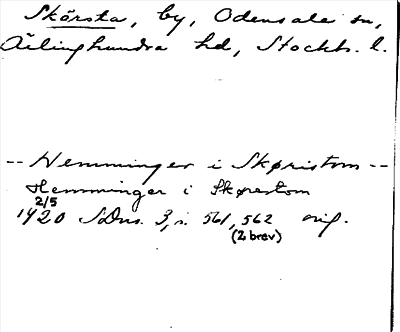 Skörsta, by, Odensala sn,
Ärlinghundra hd, Stockh. l.
-- Hemminger i Skøristom --
Hemminger i Skørestom
2/5
1420 SDns. 3, s. 561, 562 orig.
(2 brev)